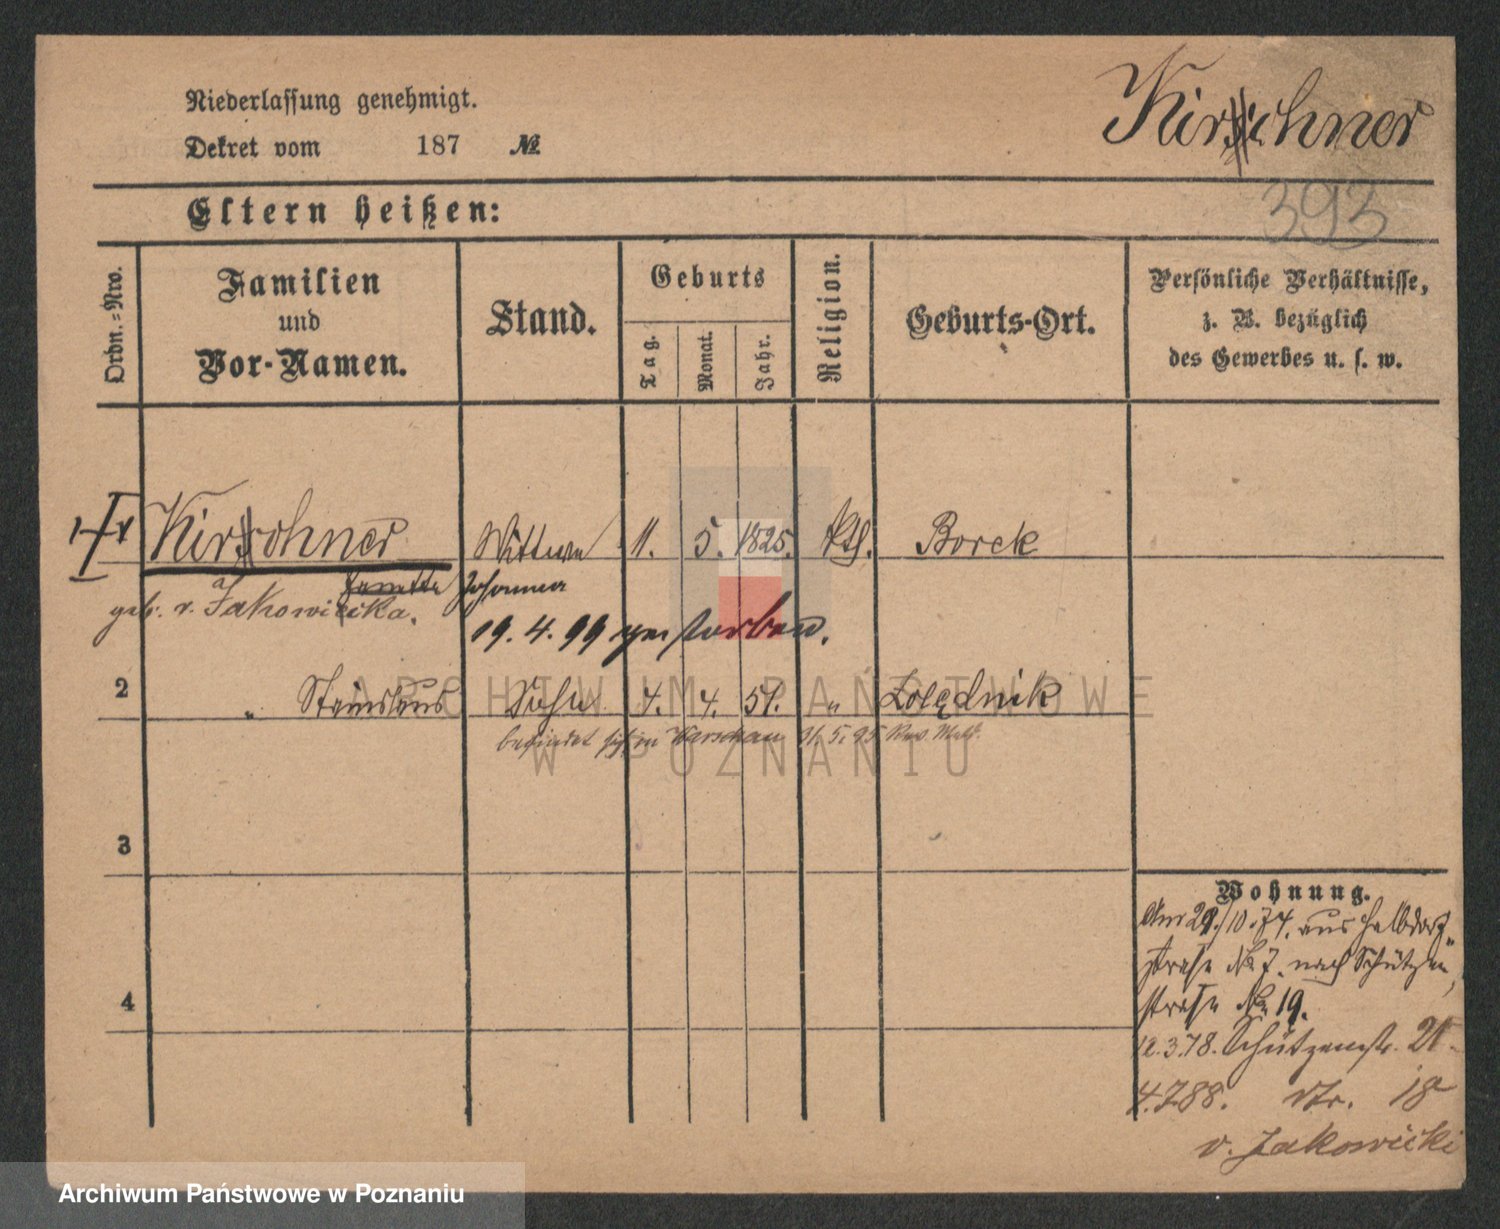 Niederlassung genehmigt.
Kirchner
Dekret vom 187 №
393
Eltern heißen:
Ordn.=Nro.
Familien
und
Vor-Namen.
Stand.
Geburts
Tag.
Monat.
Jahr.
Religion.
Geburts-Ort.
Persönliche Verhältnisse,
z. B. bezüglich
des Gewerbes u. s. w.
Kirchner Wittwe 11. 5. 1825. kth. Borek
geb. v. Zakowicka. Johanna
19. 4. 99 gestorben.
2 " Stanislaus Sohn 4. 4. 51. "
befindet sich in Warschau 31. 5. 95
3
4
Wohnung.
Am 29/10.74. aus Halbdorf-
straße No 7. nach Schützen-
straße No 19.
12.3.78. Schützenstr. 21.
4.7.88. dto. 18
v. Zakowicki
ARCHIWUM PAŃSTWOWE
W POZNANIU
Archiwum Państwowe w Poznaniu